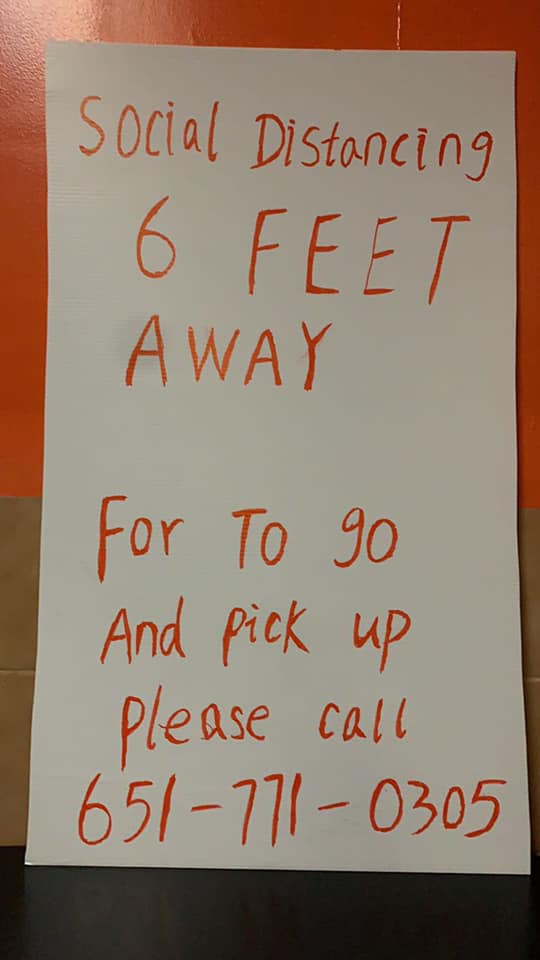 Social Distancing
6 FEET
AWAY
For To go
And pick up
please call
651-771-0305